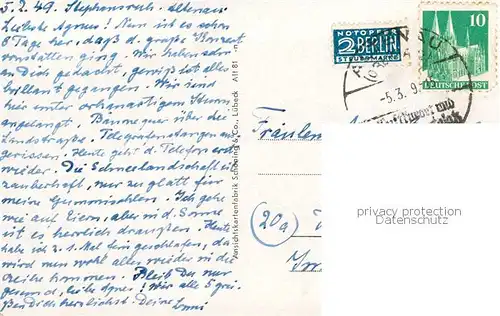 5.3.49. Stephansruh. Altenau
Liebe Agnes! Nun ist es schon
8 Tage her, daß d. große Konzert
vonstatten ging. Wir haben sehr
an Dich gedacht, gewiß ist alles
brillant gegangen. Wir sind
hier unter orkanartigem Sturm
angelangt. Bäume quer über die
Landstraße. Telegrafenstangen
gerissen. Heute geht d. Telefon erst
wieder. Die Schneelandschaft ist
zauberhaft, nur zu glatt für
meine Gummisohlen. Ich gehe
wie auf Eiern, aber mit d. Sonne
ist es herrlich draußen. Heute
habe ich z. 1. Mal fein geschlafen, da
wird man wohl alles wieder in die
Reihe kommen. Bleib Du nur
gesund, liebe Agnes! Wir alle 5 grü-
ßen Dich herzlichst. Deine
Ansichtskartenfabrik Schöning & Co., Lübeck
Alt 81
NOTOPFER
2 BERLIN
STEUERMARKE
10
DEUTSCHE POST
-5.3.
Fräulein
(20a)
privacy protection
Datenschutz